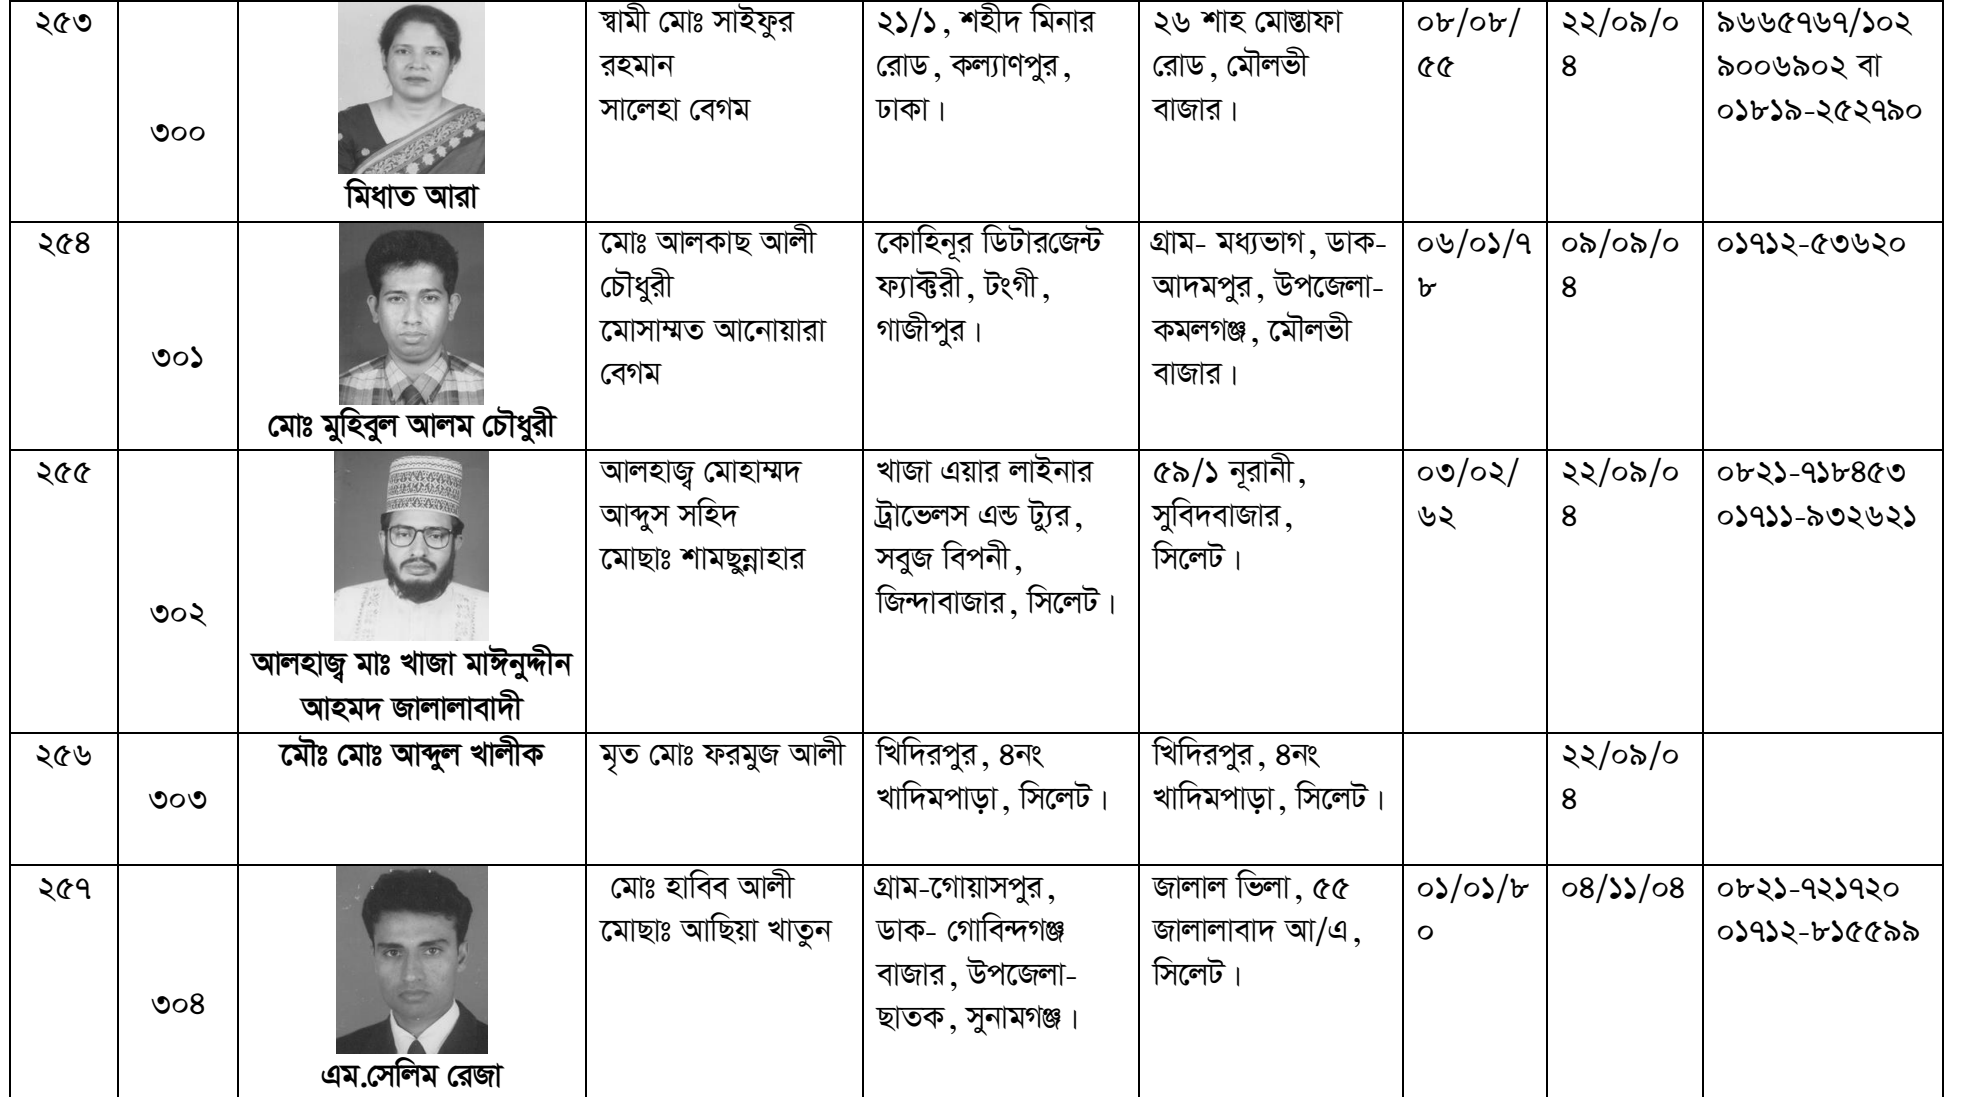 ২৫৩
৩০০
মিধাত আরা
স্বামী মোঃ সাইফুর
রহমান
সালেহা বেগম
২১/১, শহীদ মিনার
রোড, কল্যাণপুর,
ঢাকা।
২৬ শাহ মোস্তাফা
রোড, মৌলভী
বাজার।
০৮/০৮/
৫৫
২২/০৯/০
৪
৯৬৬৫৭৬৭/১০২
৯০০৬৯০২ বা
০১৮১৯-২৫২৭৯০
২৫৪
৩০১
মোঃ মুহিবুল আলম চৌধুরী
মোঃ আলকাছ আলী
চৌধুরী
মোসাম্মত আনোয়ারা
বেগম
কোহিনূর ডিটারজেন্ট
ফ্যাক্টরী, টংগী,
গাজীপুর।
গ্রাম- মধ্যভাগ, ডাক-
আদমপুর, উপজেলা-
কমলগঞ্জ, মৌলভী
বাজার।
০৬/০১/৭
৮
০৯/০৯/০
৪
০১৭১২-৫৩৬২০
২৫৫
৩০২
আলহাজ্ব মাঃ খাজা মাঈনুদ্দীন
আহমদ জালালাবাদী
আলহাজ্ব মোহাম্মদ
আব্দুস সহিদ
মোছাঃ শামছুন্নাহার
খাজা এয়ার লাইনার
ট্রাভেলস এন্ড ট্যুর,
সবুজ বিপনী,
জিন্দাবাজার, সিলেট।
৫৯/১ নূরানী,
সুবিদবাজার,
সিলেট।
০৩/০২/
৬২
২২/০৯/০
৪
০৮২১-৭১৮৪৫৩
০১৭১১-৯৩২৬২১
২৫৬
৩০৩
মৌঃ মোঃ আব্দুল খালীক
মৃত মোঃ ফরমুজ আলী
খিদিরপুর, ৪নং
খাদিমপাড়া, সিলেট।
খিদিরপুর, ৪নং
খাদিমপাড়া, সিলেট।
২২/০৯/০
৪
২৫৭
৩০৪
এম.সেলিম রেজা
মোঃ হাবিব আলী
মোছাঃ আছিয়া খাতুন
গ্রাম-গোয়াসপুর,
ডাক- গোবিন্দগঞ্জ
বাজার, উপজেলা-
ছাতক, সুনামগঞ্জ।
জালাল ভিলা, ৫৫
জালালাবাদ আ/এ,
সিলেট।
০১/০১/৮
০
০৪/১১/০৪
০৮২১-৭২১৭২০
০১৭১২-৮১৫৫৯৯